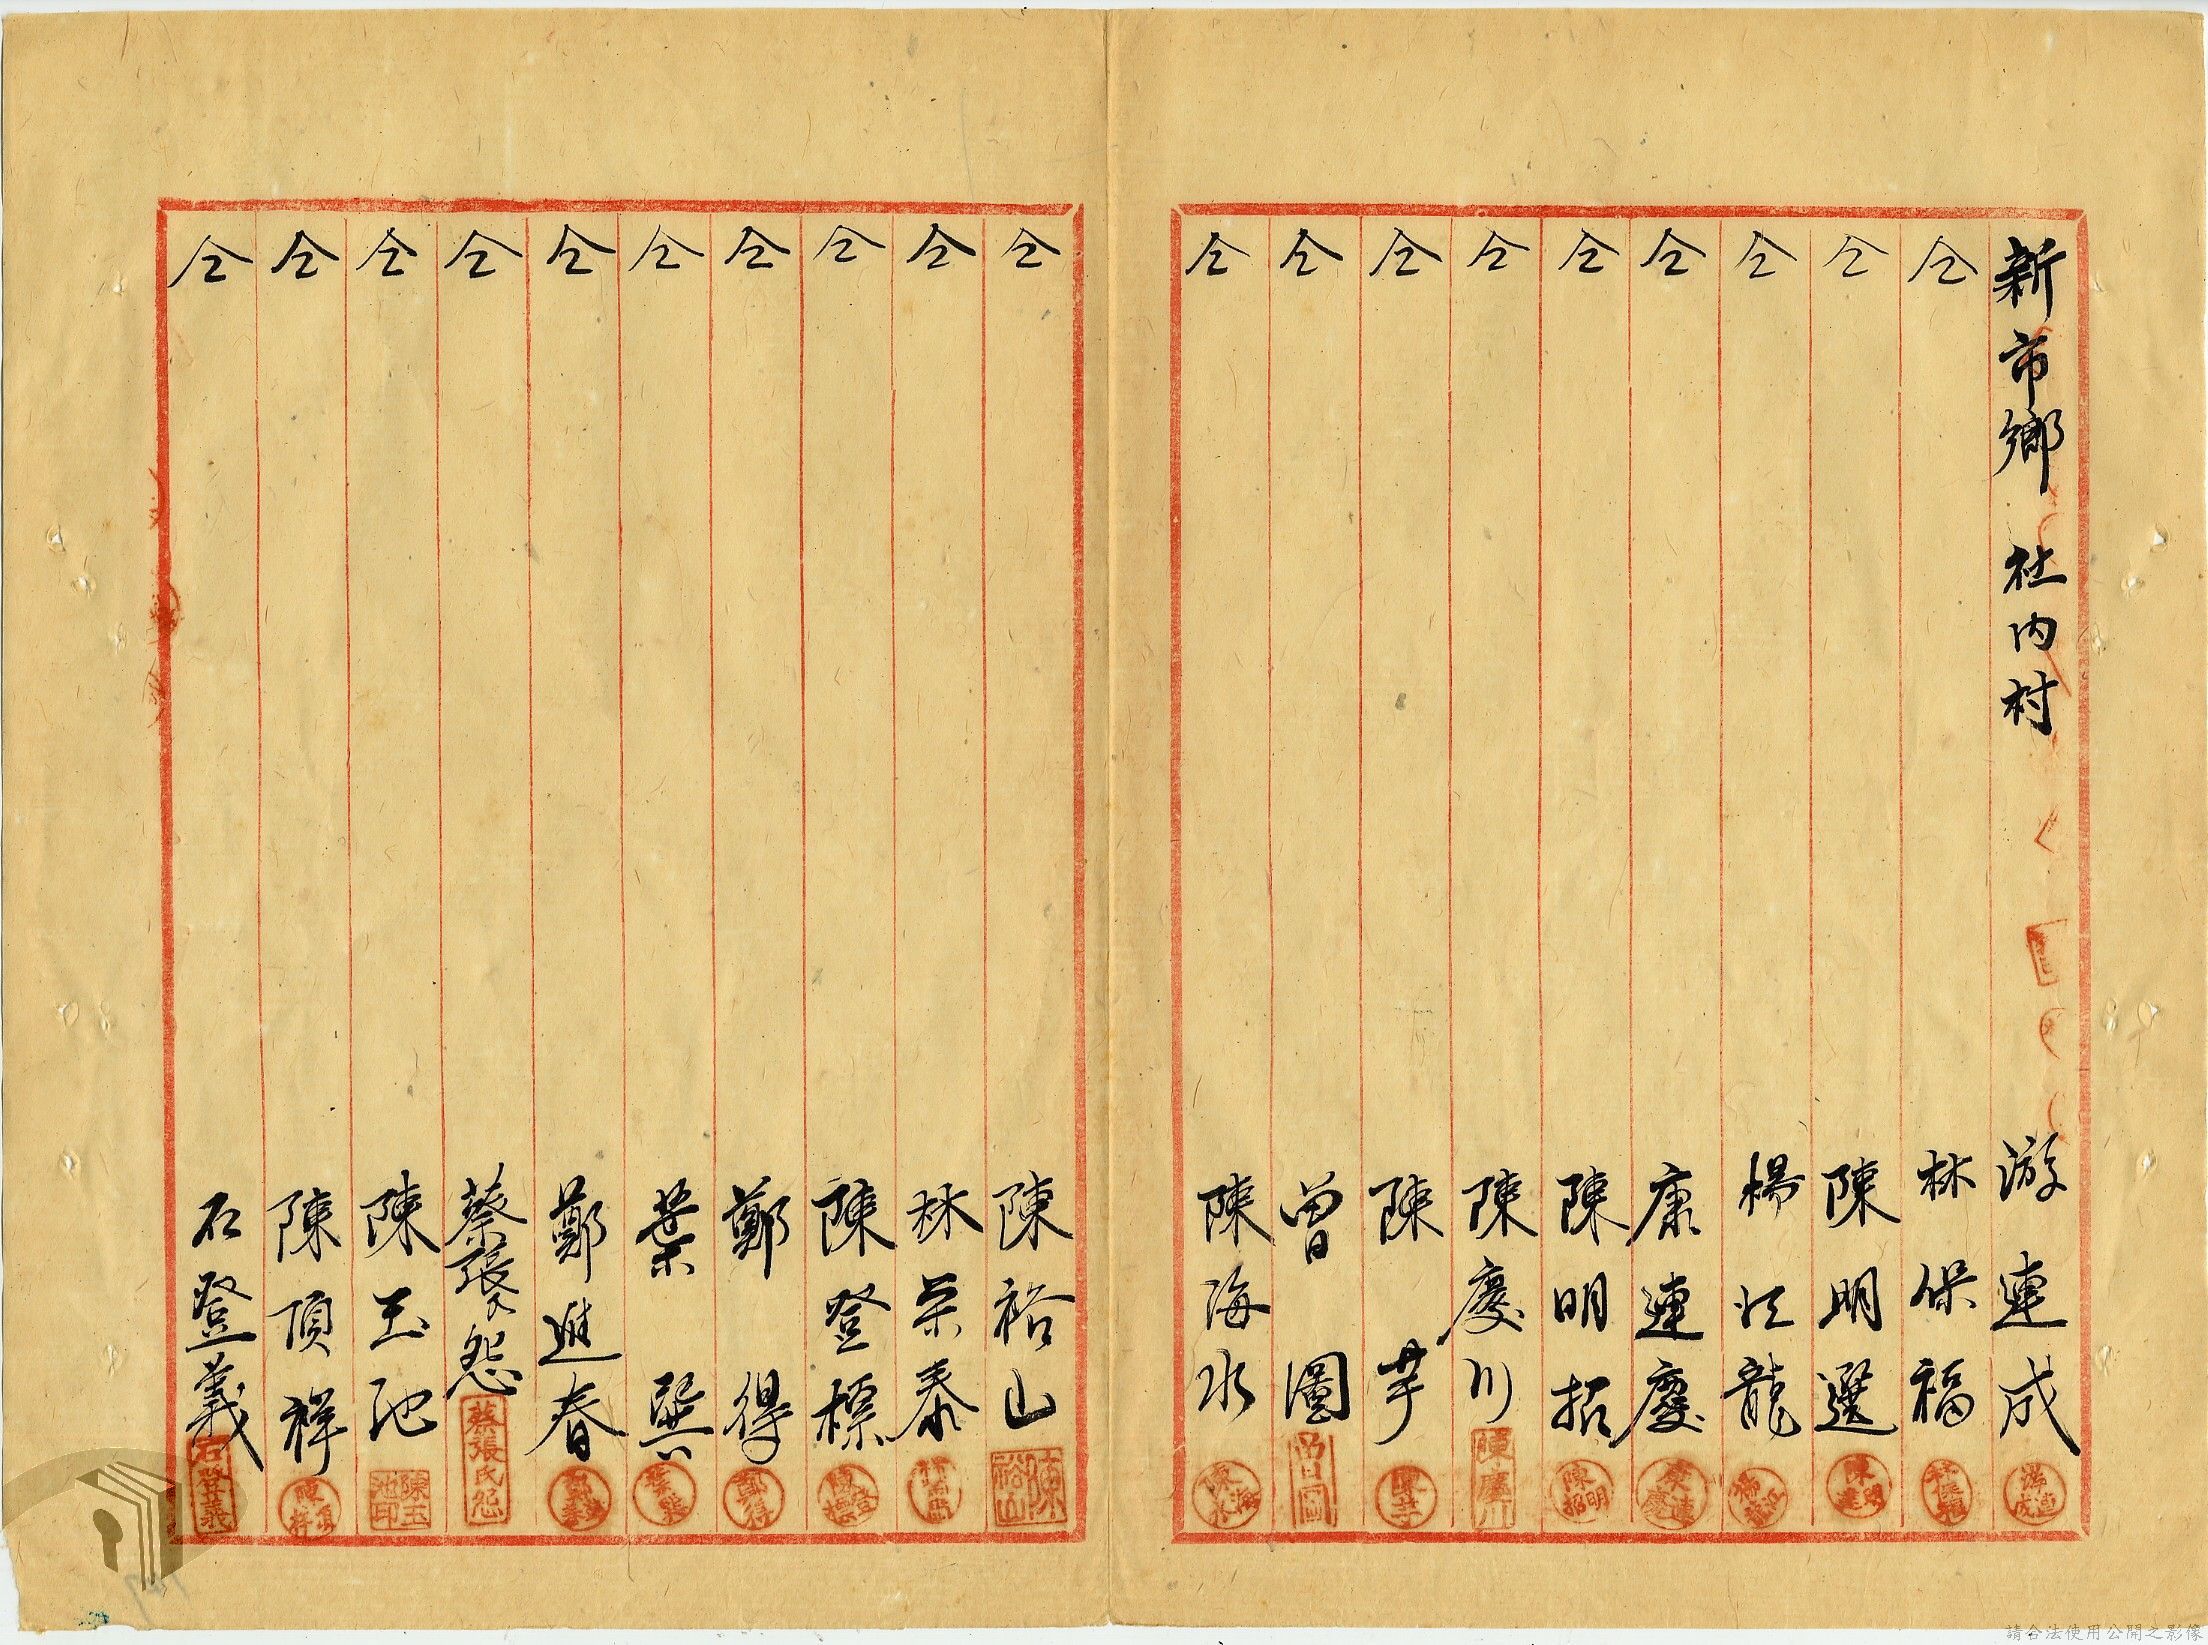 新市鄉 社內村 游連成
仝 林保福
仝 陳明選
仝 楊江龍
仝 康連慶
仝 陳明招
仝 陳慶川
仝 陳芋
仝 曾圖
仝 陳海水
仝 陳裕山
仝 林榮泰
仝 陳登標
仝 鄭得
仝 葉巽
仝 鄭進春
仝 蔡張氏怨
仝 陳玉池
仝 陳頂祥
仝 石登義
陳慶川
陳裕山
鄭得
蔡張氏怨
陳玉池印
石登義
請合法使用公開之影像